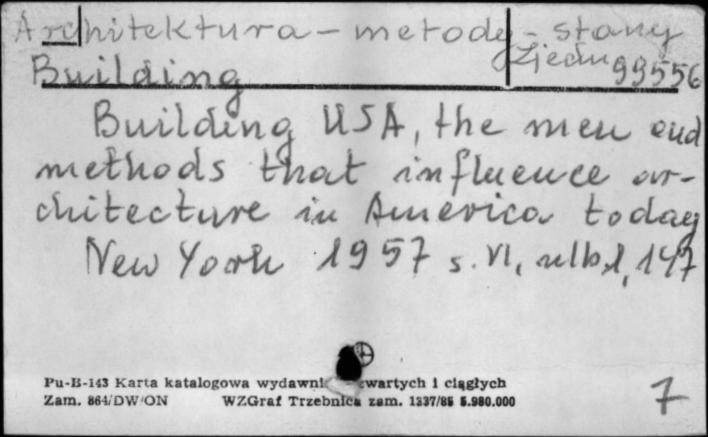 Architektura - metody - stany
Zjedn 99556
Building
Building USA, the men and
methods that influence ar-
chitecture in America today
New York 1957 s. VI, nlb 1, 147
Pu-B-143 Karta katalogowa wydawni wartych i ciągłych
Zam. 864/DW/ON WZGraf Trzebnica zam. 1337/85 5.980.000
7